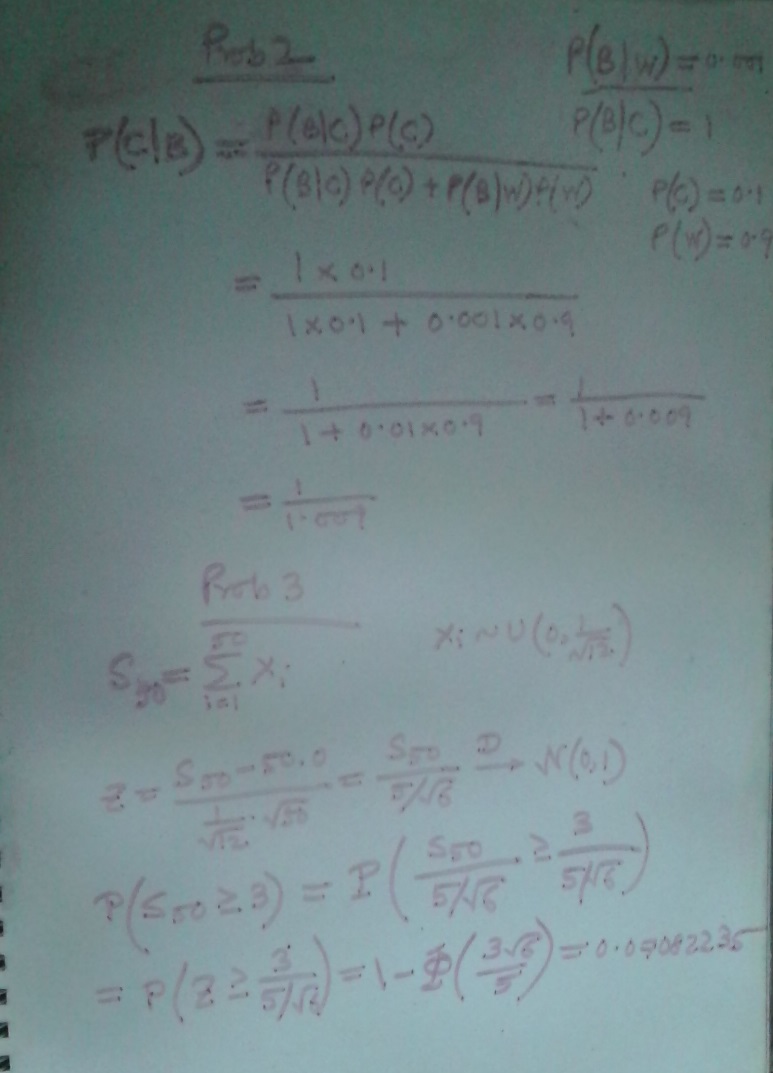 Prob 2
P(B|W) = 0.001
P(B|C) = 1
P(C|B) = P(B|C) P(C) / P(B|C) P(C) + P(B|W) P(W)
P(C) = 0.1
P(W) = 0.9
= 1 × 0.1 / 1×0.1 + 0.001×0.9
= 1 / 1 + 0.01×0.9 = 1 / 1 + 0.009
= 1 / 1.009
Prob 3
S50 = Σ_{i=1}^{50} Xi
Xi ~ U(0, 1/√12)
Z = S50 - 50.0 / 1/√12 · √50 = S50 / 5/√6 →D N(0,1)
P(S50 ≥ 3) = P( S50 / 5/√6 ≥ 3 / 5/√6 )
= P( Z ≥ 3 / 5/√6 ) = 1 - Φ( 3√6 / 5 ) =